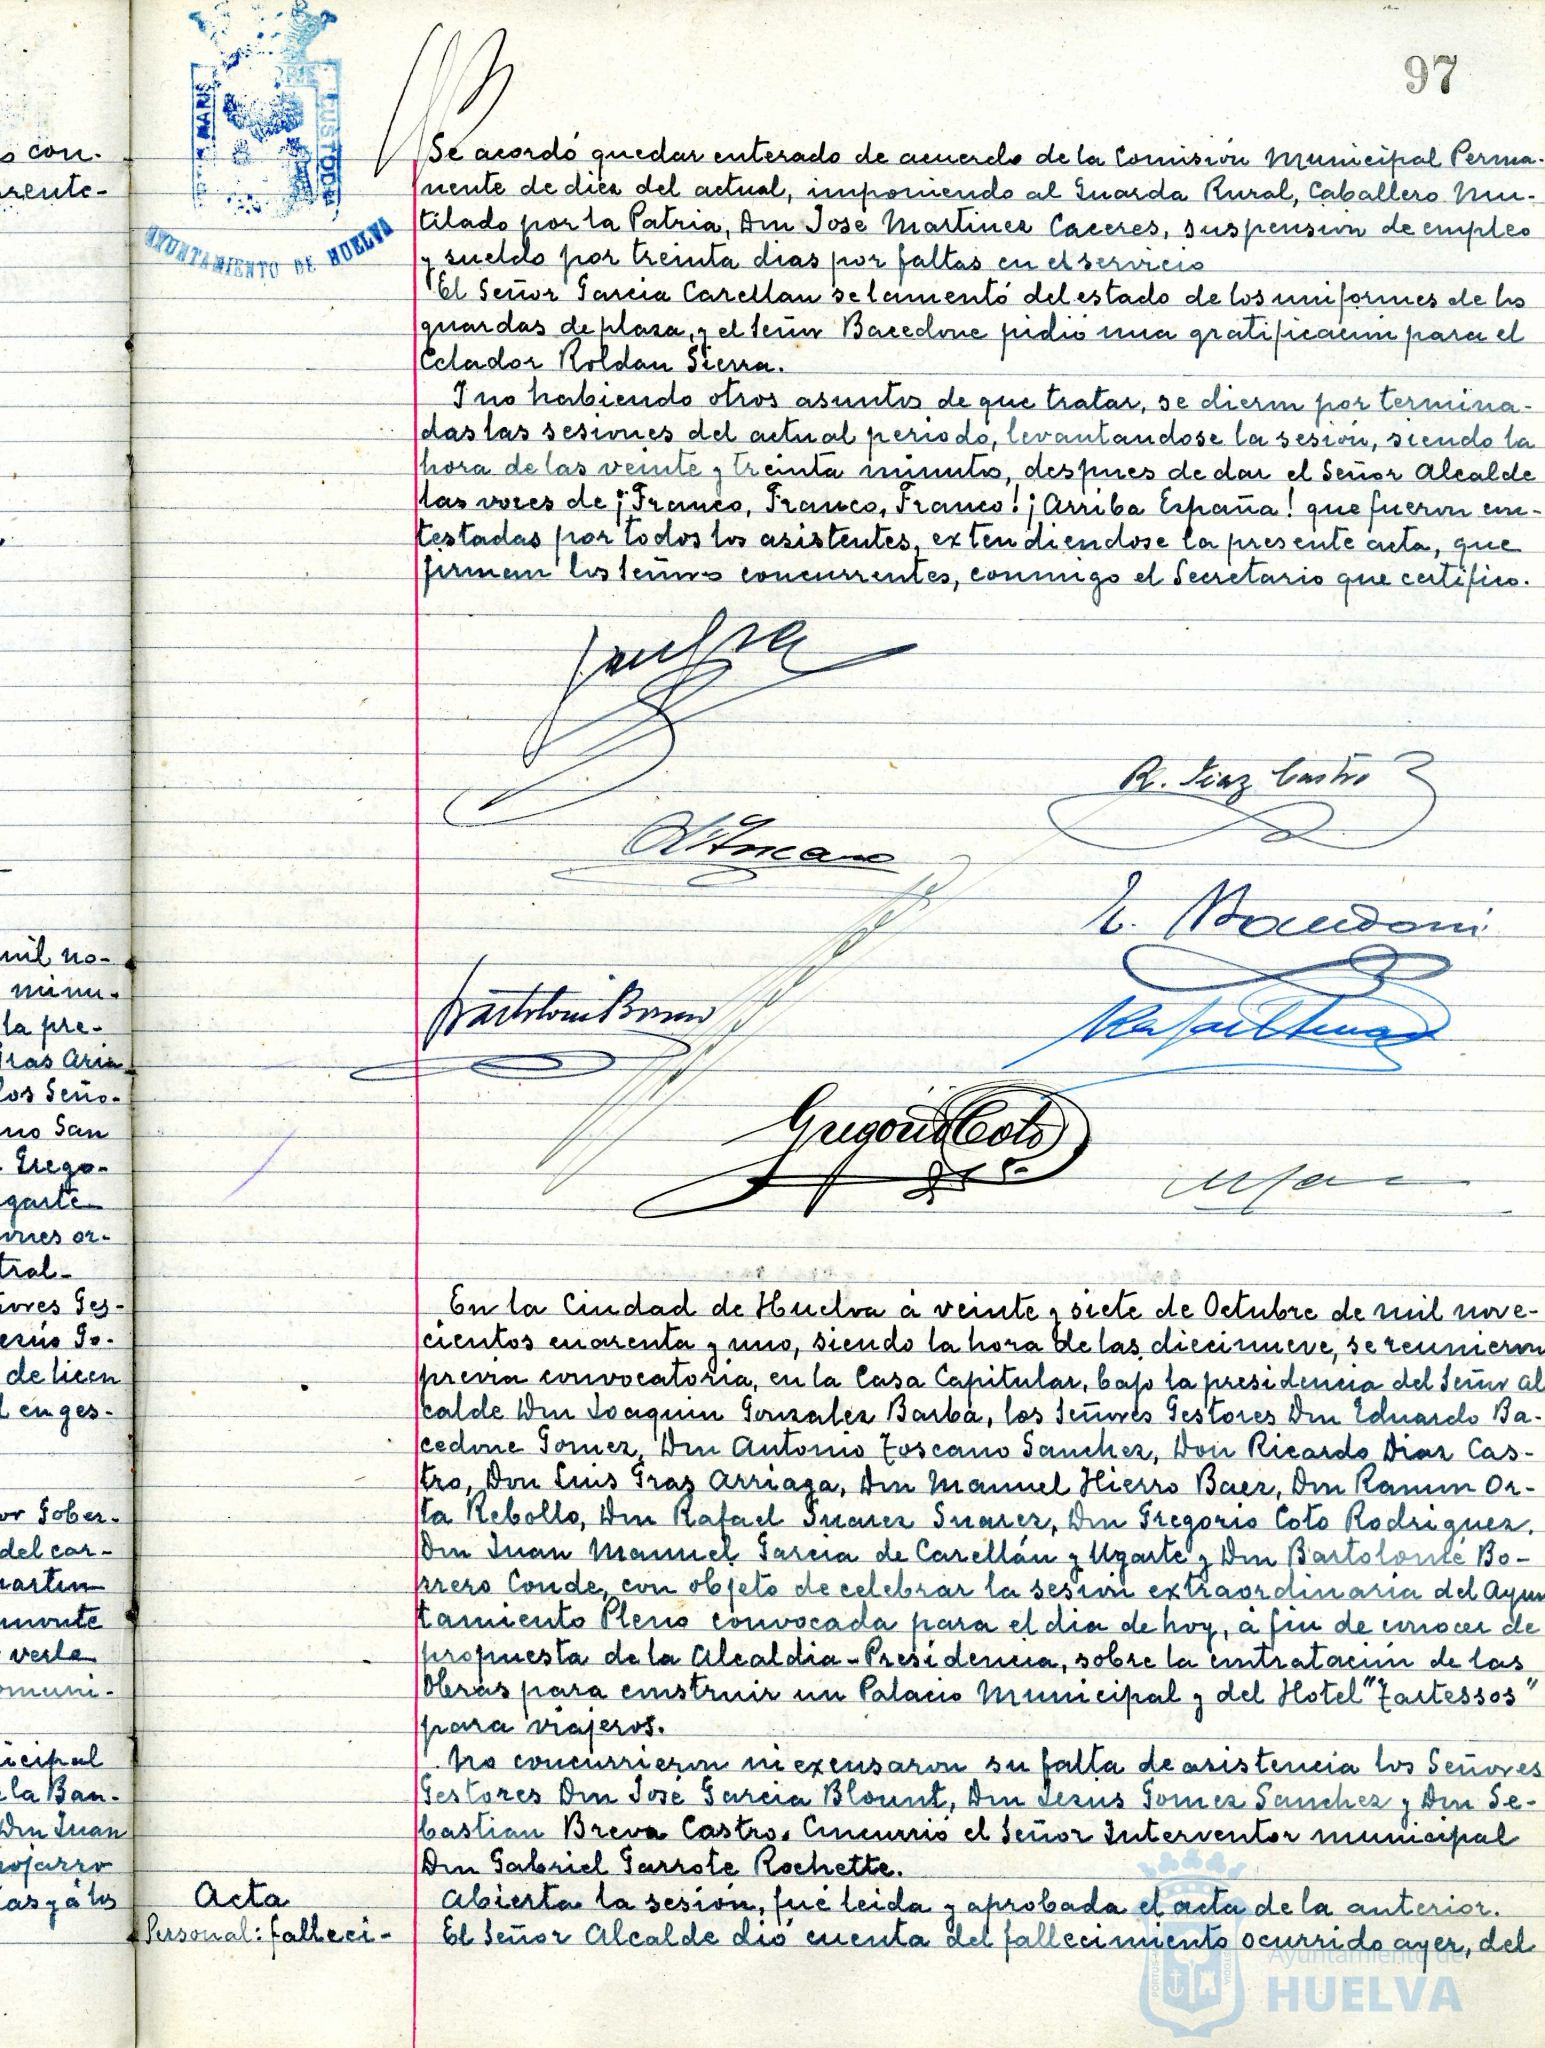 97
MARIS
CUSTODIA
AYUNTAMIENTO DE HUELVA
Se acordó quedar enterado de acuerdo de la Comisión Municipal Perma-
nente de diez del actual, imponiendo al Guarda Rural, Caballero Mu-
tilado por la Patria, Don José Martinez Caceres, suspensión de empleo
y sueldo por treinta dias por faltas en el servicio
El Señor Garcia Carellan se lamentó del estado de los uniformes de los
guardas de plaza, y el Señor Bacedone pidió una gratificación para el
Celador Roldan Sierra.
Y no habiendo otros asuntos de que tratar, se dieron por termina-
das las sesiones del actual periodo, levantandose la sesión, siendo la
hora de las veinte y treinta minutos, despues de dar el Señor Alcalde
las voces de ¡Franco, Franco, Franco! ¡Arriba España! que fueron con-
testadas por todos los asistentes, extendiendose la presente acta, que
firman los Señores concurrentes, conmigo el Secretario que certifico.
R. Diaz Castro
A Toscano
E. Bacedoni
Bartolomé Borrero
Rafael Suarez
Gregorio Coto
En la Ciudad de Huelva á veinte y siete de Octubre de mil nove-
cientos cuarenta y uno, siendo la hora de las diecinueve, se reunieron
previa convocatoria, en la Casa Capitular, bajo la presidencia del Señor Al
calde Don Joaquin Gonzalez Barba, los Señores Gestores Don Eduardo Ba-
cedone Gomez, Don Antonio Toscano Sanchez, Don Ricardo Diaz Cas-
tro, Don Luis Graz Arriaga, Don Manuel Hierro Baez, Don Ramon Or-
ta Rebollo, Don Rafael Suarez Suarez, Don Gregorio Coto Rodriguez,
Don Juan Manuel Garcia de Carellán y Ugarte y Don Bartolomé Bo-
rrero Conde, con objeto de celebrar la sesión extraordinaria del Ayun
tamiento Pleno convocada para el dia de hoy, á fin de conocer de
propuesta de la Alcaldia-Presidencia, sobre la contratación de las
Obras para construir un Palacio Municipal y del Hotel "Tartessos"
para viajeros.
No concurrieron ni excusaron su falta de asistencia los Señores
Gestores Don José Garcia Blount, Don Jesús Gomez Sanchez y Don Se-
bastian Breva Castro. Concurrió el Señor Interventor municipal
Don Gabriel Garrote Rochette.
Acta
Abierta la sesión, fué leida y aprobada el acta de la anterior.
Personal: falleci-
El Señor Alcalde dió cuenta del fallecimiento ocurrido ayer, del
Ayuntamiento de
HUELVA